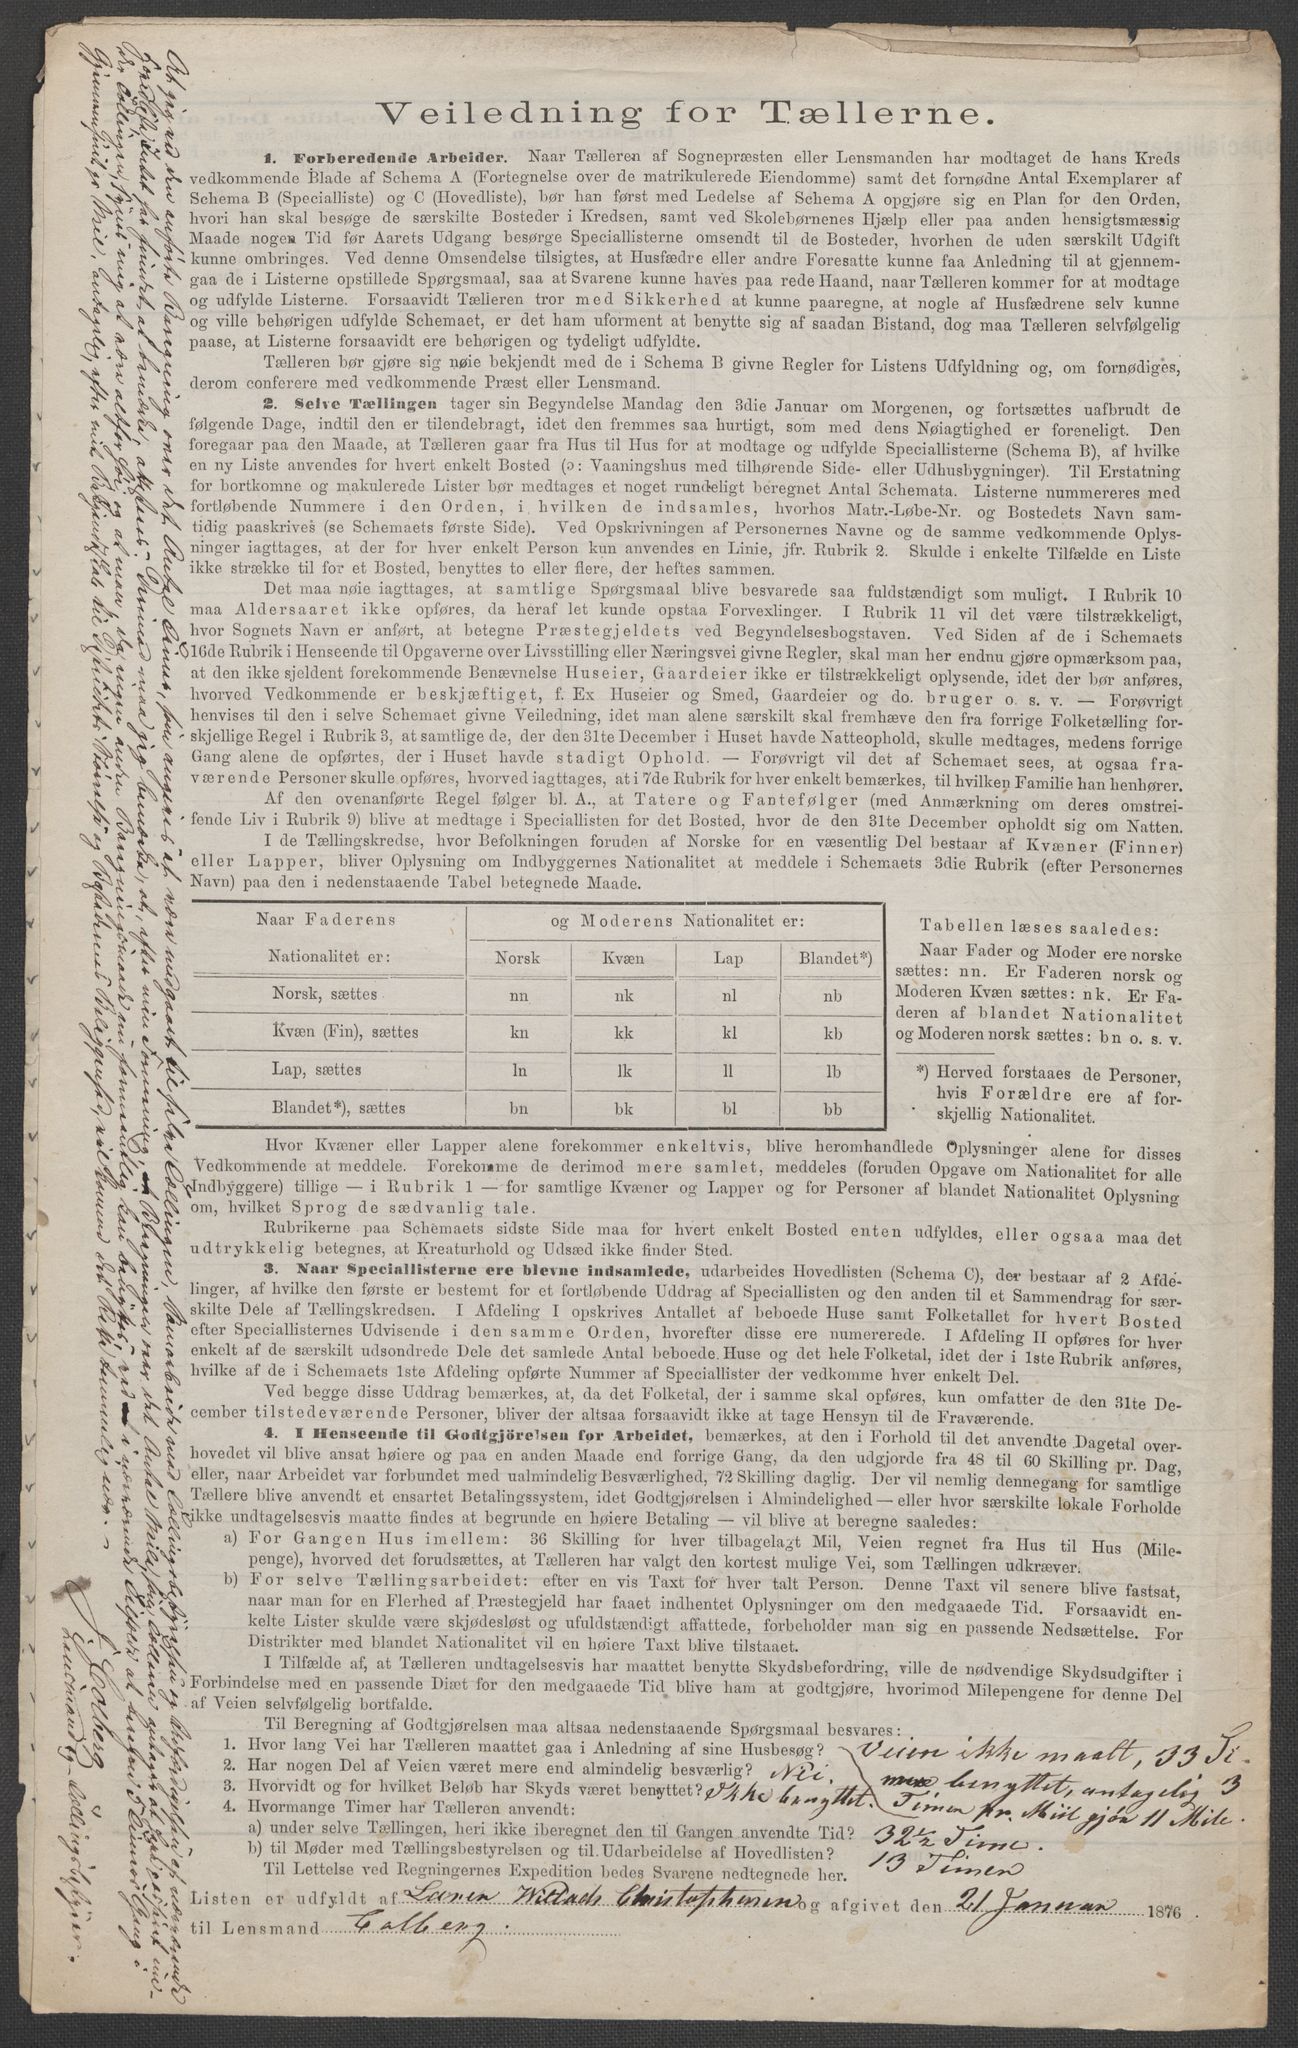 Veiledning for Tællerne.
1. Forberedende Arbeider. Naar Tælleren af Sognepræsten eller Lensmanden har modtaget de hans Kreds
vedkommende Blade af Schema A (Fortegnelse over de matrikulerede Eiendomme) samt det fornødne Antal Exemplarer af
Schema B (Specialliste) og C (Hovedliste), bør han først med Ledelse af Schema A opgjøre sig en Plan for den Orden,
hvori han skal besøge de særskilte Bosteder i Kredsen, samt ved Skolebørnenes Hjælp eller paa anden hensigtsmæssig
Maade nogen Tid før Aarets Udgang besørge Speciallisterne omsendt til de Bosteder, hvorhen de uden særskilt Udgift
kunne ombringes. Ved denne Omsendelse tilsigtes, at Husfædre eller andre Foresatte kunne faa Anledning til at gjennem-
gaa de i Listerne opstillede Spørgsmaal, saa at Svarene kunne haves paa rede Haand, naar Tælleren kommer for at modtage
og udfylde Listerne. Forsaavidt Tælleren tror med Sikkerhed at kunne paaregne, at nogle af Husfædrene selv kunne
og ville behørigen udfylde Schemaet, er det ham uforment at benytte sig af saadan Bistand, dog maa Tælleren selvfølgelig
paase, at Listerne forsaavidt ere behørigen og tydeligt udfyldte.
Tælleren bør gjøre sig nøie bekjendt med de i Schema B givne Regler for Listens Udfyldning og, om fornødiges,
derom conferere med vedkommende Præst eller Lensmand.
2. Selve Tællingen tager sin Begyndelse Mandag den 3die Januar om Morgenen, og fortsættes uafbrudt de
følgende Dage, indtil den er tilendebragt, idet den fremmes saa hurtigt, som med dens Nøiagtighed er foreneligt. Den
foregaar paa den Maade, at Tælleren gaar fra Hus til Hus for at modtage og udfylde Speciallisterne (Schema B), af hvilke
en ny Liste anvendes for hvert enkelt Bosted (ɔ: Vaaningshus med tilhørende Side- eller Udhusbygninger). Til Erstatning
for bortkomne og makulerede Lister bør medtages et noget rundeligt beregnet Antal Schemata. Listerne nummereres med
fortløbende Nummere i den Orden, i hvilken de indsamles, hvorhos Matr.-Løbe-Nr. og Bostedets Navn sam-
tidig paaskrives (se Schemaets første Side). Ved Opskrivningen af Personernes Navne og de samme vedkommende Oplys-
ninger iagttages, at der for hver enkelt Person kun anvendes en Linie, jfr. Rubrik 2. Skulde i enkelte Tilfælde en Liste
ikke strække til for et Bosted, benyttes to eller flere, der heftes sammen.
Det maa nøie iagttages, at samtlige Spørgsmaal blive besvarede saa fuldstændigt som muligt. I Rubrik 10
maa Aldersaaret ikke opføres, da heraf let kunde opstaa Forvexlinger. I Rubrik 11 vil det være tilstrækkeligt,
hvor Sognets Navn er anført, at betegne Præstegjeldets ved Begyndelsesbogstaven. Ved Siden af de i Schemaets
16de Rubrik i Henseende til Opgaverne over Livsstilling eller Næringsvei givne Regler, skal man her endnu gjøre opmærksom paa,
at den ikke sjeldent forekommende Benævnelse Huseier, Gaardeier ikke er tilstrækkeligt oplysende, idet der bør anføres,
hvorved Vedkommende er beskjæftiget, f. Ex Huseier og Smed, Gaardeier og do. bruger o. s. v. — Forøvrigt
henvises til den i selve Schemaet givne Veiledning, idet man alene særskilt skal fremhæve den fra forrige Folketælling for-
skjellige Regel i Rubrik 3, at samtlige de, der den 31te December i Huset havde Natteophold, skulle medtages, medens forrige
Gang alene de opførtes, der i Huset havde stadigt Ophold. — Forøvrigt vil det af Schemaet sees, at ogsaa fra-
værende Personer skulle opføres, hvorved iagttages, at i 7de Rubrik for hver enkelt bemærkes, til hvilken Familie han henhører.
Af den ovenanførte Regel følger bl. A., at Tatere og Fantefølger (med Anmærkning om deres omstrei-
fende Liv i Rubrik 9) blive at medtage i Speciallisten for det Bosted, hvor de den 31te December opholdt sig om Natten.
I de Tællingskredse, hvor Befolkningen foruden af Norske for en væsentlig Del bestaar af Kvæner (Finner)
eller Lapper, bliver Oplysning om Indbyggernes Nationalitet at meddele i Schemaets 3die Rubrik (efter Personernes
Navn) paa den i nedenstaaende Tabel betegnede Maade.
Naar Faderens og Moderens Nationalitet er:
Nationalitet er: Norsk Kvæn Lap Blandet*)
Norsk, sættes nn nk nl nb
Kvæn (Fin), sættes kn kk kl kb
Lap, sættes ln lk ll lb
Blandet*), sættes bn bk bl bb
Tabellen læses saaledes:
Naar Fader og Moder ere norske
sættes: nn. Er Faderen norsk og
Moderen Kvæn sættes: nk. Er Fa-
deren af blandet Nationalitet
og Moderen norsk sættes: bn o. s. v.
*) Herved forstaaes de Personer,
hvis Forældre ere af for-
skjellig Nationalitet.
Hvor Kvæner eller Lapper alene forekommer enkeltvis, blive heromhandlede Oplysninger alene for disses
Vedkommende at meddele. Forekomme de derimod mere samlet, meddeles (foruden Opgave om Nationalitet for alle
Indbyggere) tillige — i Rubrik 1 — for samtlige Kvæner og Lapper og for Personer af blandet Nationalitet Oplysning
om, hvilket Sprog de sædvanlig tale.
Rubrikerne paa Schemaets sidste Side maa for hvert enkelt Bosted enten udfyldes, eller ogsaa maa det
udtrykkelig betegnes, at Kreaturhold og Udsæd ikke finder Sted.
3. Naar Speciallisterne ere blevne indsamlede, udarbeides Hovedlisten (Schema C), der bestaar af 2 Afde-
linger, af hvilke den første er bestemt for et fortløbende Uddrag af Speciallisten og den anden til et Sammendrag for sær-
skilte Dele af Tællingskredsen. I Afdeling I opskrives Antallet af beboede Huse samt Folketallet for hvert Bosted
efter Speciallisternes Udvisende i den samme Orden, hvorefter disse ere numererede. I Afdeling II opføres for hver
enkelt af de særskilt udsondrede Dele det samlede Antal beboede Huse og det hele Folketal, idet der i 1ste Rubrik anføres,
hvilke af de i Schemaets 1ste Afdeling opførte Nummer af Speciallister der vedkomme hver enkelt Del.
Ved begge disse Uddrag bemærkes, at, da det Folketal, der i samme skal opføres, kun omfatter de den 31te De-
cember tilstedeværende Personer, bliver der altsaa forsaavidt ikke at tage Hensyn til de Fraværende.
4. I Henseende til Godtgjörelsen for Arbeidet, bemærkes, at den i Forhold til det anvendte Dagetal over-
hovedet vil blive ansat høiere og paa en anden Maade end forrige Gang, da den udgjorde fra 48 til 60 Skilling pr. Dag,
eller, naar Arbeidet var forbundet med ualmindelig Besværlighed, 72 Skilling daglig. Der vil nemlig dennegang for samtlige
Tællere blive anvendt et ensartet Betalingssystem, idet Godtgjørelsen i Almindelighed — eller hvor særskilte lokale Forholde
ikke undtagelsesvis maatte findes at begrunde en høiere Betaling — vil blive at beregne saaledes:
a) For Gangen Hus imellem: 36 Skilling for hver tilbagelagt Mil, Veien regnet fra Hus til Hus (Mile-
penge), hvorved det forudsættes, at Tælleren har valgt den kortest mulige Vei, som Tællingen udkræver.
b) For selve Tællingsarbeidet: efter en vis Taxt for hver talt Person. Denne Taxt vil senere blive fastsat,
naar man for en Flerhed af Præstegjeld har faaet indhentet Oplysninger om den medgaaede Tid. Forsaavidt en-
kelte Lister skulde være skjødesløst og ufuldstændigt affattede, forbeholder man sig en passende Nedsættelse. For
Distrikter med blandet Nationalitet vil en høiere Taxt blive tilstaaet.
I Tilfælde af, at Tælleren undtagelsesvis har maattet benytte Skydsbefordring, ville de nødvendige Skydsudgifter i
Forbindelse med en passende Diæt for den medgaaede Tid blive ham at godtgjøre, hvorimod Milepengene for denne Del
af Veien selvfølgelig bortfalde.
Til Beregning af Godtgjørelsen maa altsaa nedenstaaende Spørgsmaal besvares:
1. Hvor lang Vei har Tælleren maattet gaa i Anledning af sine Husbesøg? Veien ikke maalt, 33 Ti-
2. Har nogen Del af Veien været mere end almindelig besværlig? Nei. mer benyttet, antagelig 3
3. Hvorvidt og for hvilket Beløb har Skyds været benyttet? Ikke benyttet. Timer pr. Miil gjør 11 Mile.
4. Hvormange Timer har Tælleren anvendt:
a) under selve Tællingen, heri ikke iberegnet den til Gangen anvendte Tid? 32 1/2 Time.
b) til Møder med Tællingsbestyrelsen og til Udarbeidelse af Hovedlisten? 13 Timer
Til Lettelse ved Regningernes Expedition bedes Svarene nedtegnede her.
Listen er udfyldt af Christophersen og afgivet den 21 Januar 1876
til Lensmand Colberg.